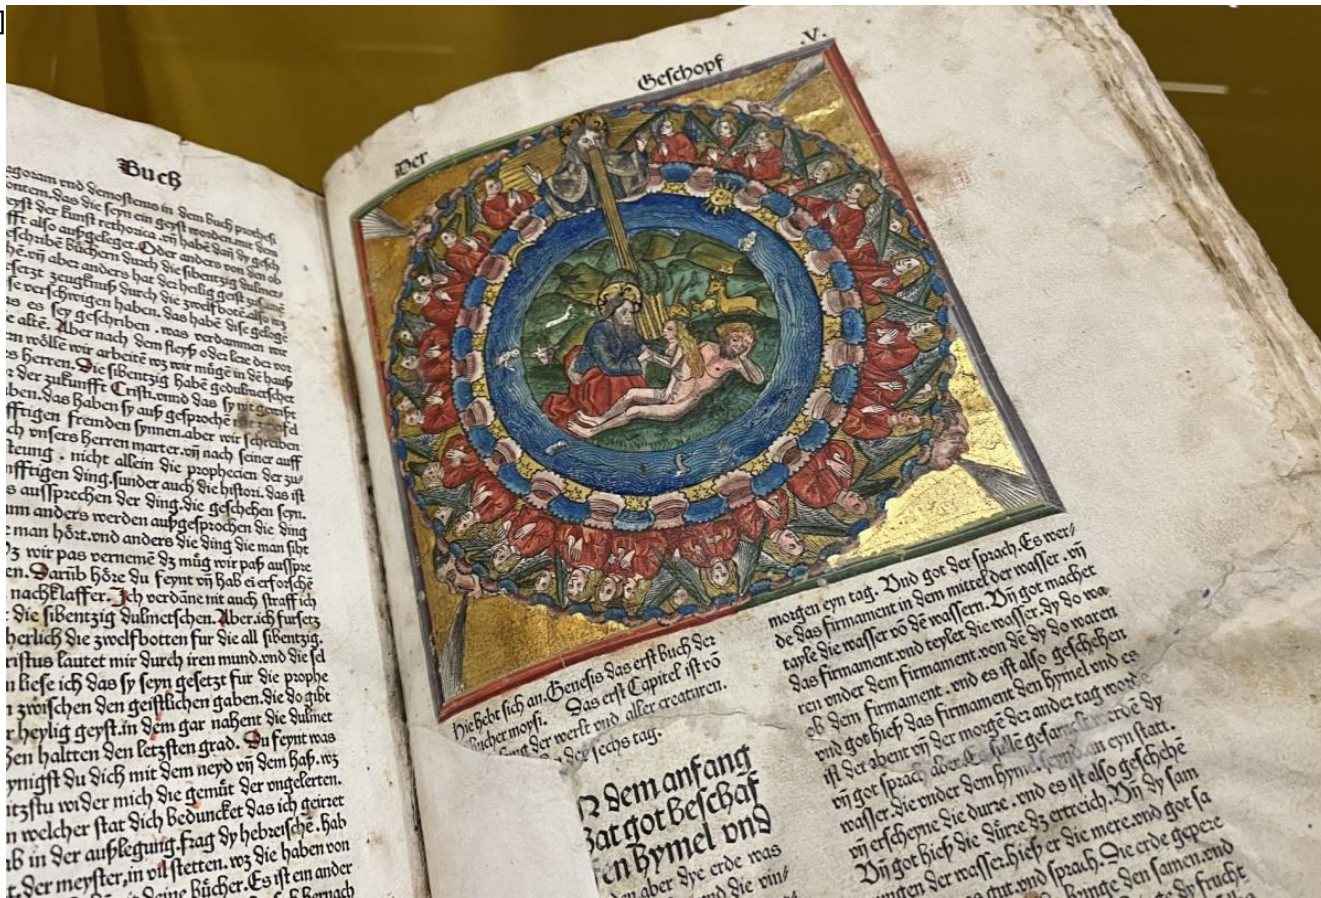 ]
Buch
agoram vnd demostenus in dem buch prothesi
ontem. Das die seyn ein geyst worden. mit dem
eyst der kunst rethorica. vñ habē dañ dy gesch
fft also außgeleget. Oder anders von den ob
eschribē büchern durch die sibentzig dulmet
hē. vñ aber anders hat der heilig geist
esetzt zeugknuß durch die zwelfbotē. also wz
se verschwigen haben. das habē dise gelege
as es sey geschriben. was verdammen wir
e altē. Aber nach dem fleyß oder lere der vor
an wölle wir arbeitē wz wir mügē in dē hauß
s herren. Die sibentzig habē gedulmetschet
r der zukunfft Cristi. vnnd das sy nit gewißt
ben. das haben sy auß gesprochē
fftigen fremden synnen. aber wir schreiben
ch vnsers herren marter. vñ nach seiner auff
steung. nicht allein die prophecien der zu/
nfftigen ding. sunder auch die histori. das ist
s aussprechen der ding. die geschehen seyn.
um anders werden außgesprochen die ding
e man hört. vnd anders die ding die man siht
dz wir pas vernemē dz müg wir paß ausspre
en. Darüb höre du feynt vñ hab ei erforschē
nachklaffer. Ich verdāne nit auch straff ich
t die sibentzig dulmetschen. Aber. ich fursetz
herlich die zwelfbotten fur die all sibentzig.
ristus lautet mir durch iren mund. vnd die sel
n liese ich das sy seyn gesetzt fur die prophe
n zwischen den geistlichen gaben. die do gibt
r heylig geyst. in dem gar nahent die dulmet
hen haltten den letzsten grad. Du feynt was
ynigst du dich mit dem neyd vñ dem haß. wz
itzstu wider mich die gemüt der vngelerten.
n welcher stat dich beduncket das ich geirret
ab in der außlegung. frag dy hebreische. hab
t. der meyster, in vil stetten. wz die haben von
deine bücher. Es ist ein ander
hernach
Der Geschopf .V.
Hie hebt sich an. Genesis das erst buch der
bücher moysi. Das erst Capitel ist vō
der werlt vnd aller creaturen.
der sechs tag.
N dem anfang
hat got beschaf
en hymel vnd
den aber dye erde was
vnd die vin/
morgen eyn tag. Vnd got der sprach. Es wer/
de das firmament in dem mittel der wasser. vñ
tayle die wasser vō dē wassern. Vñ got machet
das firmament. vnd teylet die wasser. dy do wa
ren vnder dem firmament. von dē dy do waren
ob dem firmament. vnd es ist also geschehen
vnd got hieß das firmament den hymel vnd es
ist der abent vñ der morgē der ander tag worden
vñ got sprach aber. Es sullē gesamelt werdē dy
wasser. die vnder dem hymel seynd. an eyn statt.
vñ erscheyne die durre. vnd es ist also geschehē
Vñ got hieß die dürre. dz ertreich. Vñ dy sam
ungen der wasser. hieß er die mere. vnd got sa
gut. vnd sprach. Die erde gepere
bringe den samen. vnd
dy frucht